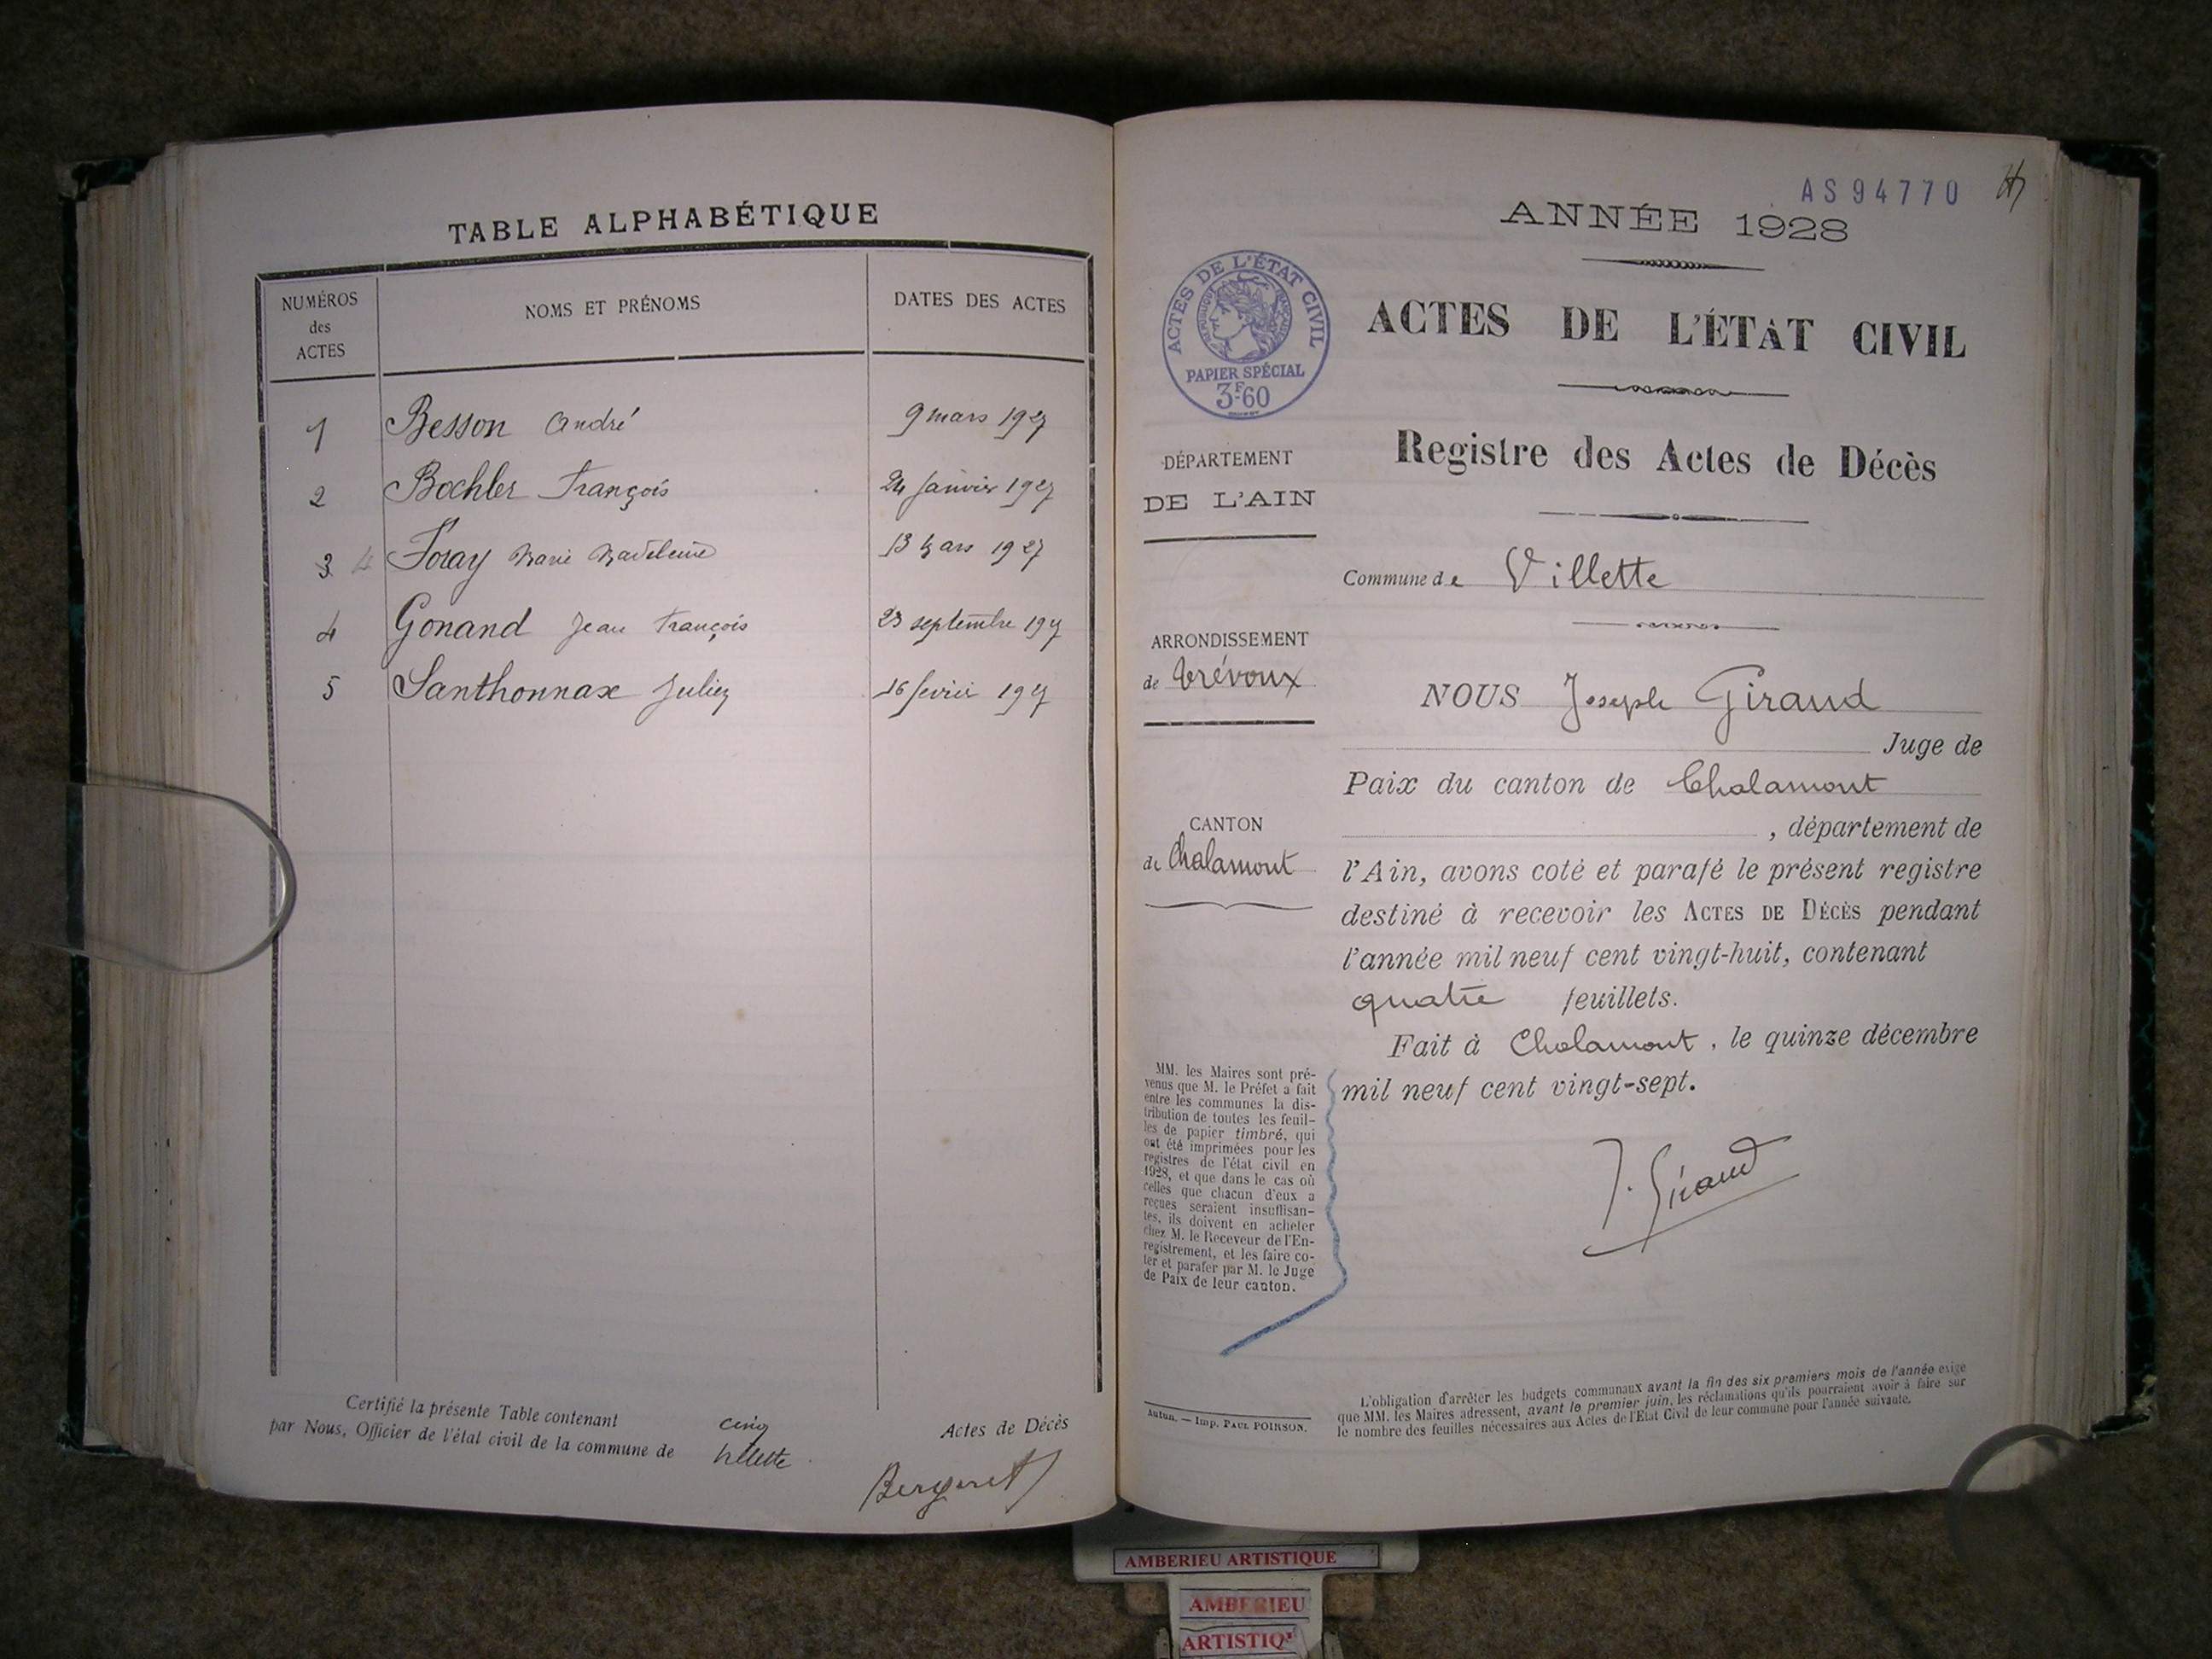 TABLE ALPHABÉTIQUE
NUMÉROS
des
ACTES
NOMS ET PRÉNOMS
DATES DES ACTES
1 Besson André 9 mars 1927
2 Bochler François 24 Janvier 1927
3 4 Foray Marie Madeleine 13 Mars 1927
4 Gonand Jean François 23 septembre 1927
5 Santhonnax Julien 16 fevrier 1927
Certifié la présente Table contenant cinq Actes de Décès
par Nous, Officier de l'état civil de la commune de Villette
Bergeret
AS94770
ANNÉE 1928
ACTES DE L'ÉTAT CIVIL
RÉPUBLIQUE FRANÇAISE
PAPIER SPÉCIAL
3F.60
ACTES DE L'ÉTAT CIVIL
Registre des Actes de Décès
DÉPARTEMENT
DE L'AIN
Commune de Villette
ARRONDISSEMENT
de Trévoux
NOUS Joseph Giraud
Juge de
Paix du canton de Chalamont
, département de
CANTON
de Chalamont
l'Ain, avons coté et parafé le présent registre
destiné à recevoir les ACTES DE DÉCÈS pendant
l'année mil neuf cent vingt-huit, contenant
quatre feuillets.
Fait à Chalamont, le quinze décembre
mil neuf cent vingt-sept.
J. Giraud
MM. les Maires sont pré-
venus que M. le Préfet a fait
entre les communes la dis-
tribution de toutes les feuil-
les de papier timbré, qui
ont été imprimées pour les
registres de l'état civil en
1928, et que dans le cas où
celles que chacun d'eux a
reçues seraient insuffisan-
tes, ils doivent en acheter
chez M. le Receveur de l'En-
registrement, et les faire co-
ter et parafer par M. le Juge
de Paix de leur canton.
Autun. — Imp. PAUL POIRSON.
L'obligation d'arrêter les budgets communaux avant la fin des six premiers mois de l'année exige
que MM. les Maires adressent, avant le premier juin, les réclamations qu'ils pourraient avoir à faire sur
le nombre des feuilles nécessaires aux Actes de l'Etat Civil de leur commune pour l'année suivante.
AMBERIEU ARTISTIQUE
AMBERIEU
ARTISTIQ